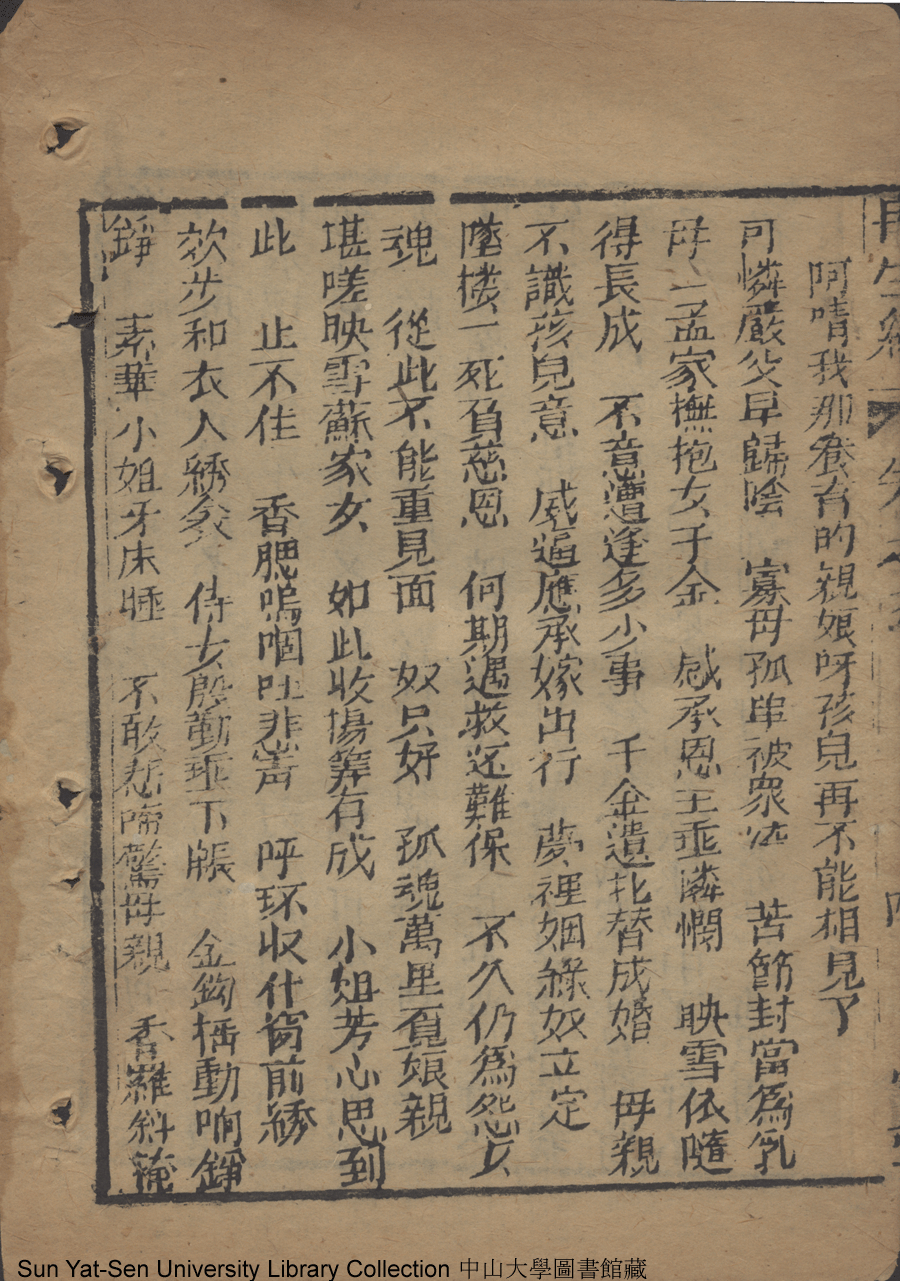 再生緣
阿唷我那養育的親娘呀孩兒再不能相見了
可憐嚴父早歸陰 寡母孤串被衆 苦節封當爲乳
母 孟家撫抱女千金 感承恩主垂憐憫 映雪依隨
得長成 不意遭逢多少事 千金遺托替成婚 母親
不識孩兒意 威逼應承嫁出行 夢裡姻緣奴立定
墜楼一死負慈恩 何期遇救还難保 不久仍爲怨女
魂 從此不能重見面 奴只好 孤魂萬里覔娘親
堪嗟映雪蘇家女 如此收塲筭有成 小姐芳心思到
此 止不住 香腮嗚咽吐悲声 呼环収什窗前綉
欬步和衣人綉衾 侍女殷勤垂下賬 金鈎搖動响錚
錚 素華小姐牙床睡 不敢悲啼驚母親 香羅斜掩
Sun Yat-Sen University Library Collection 中山大學圖書館藏